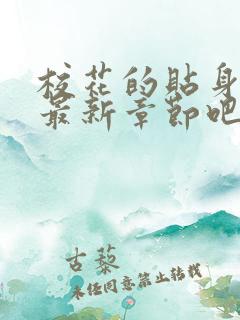 校花的贴身
最新章节吧
古藜
未经同意禁止转载